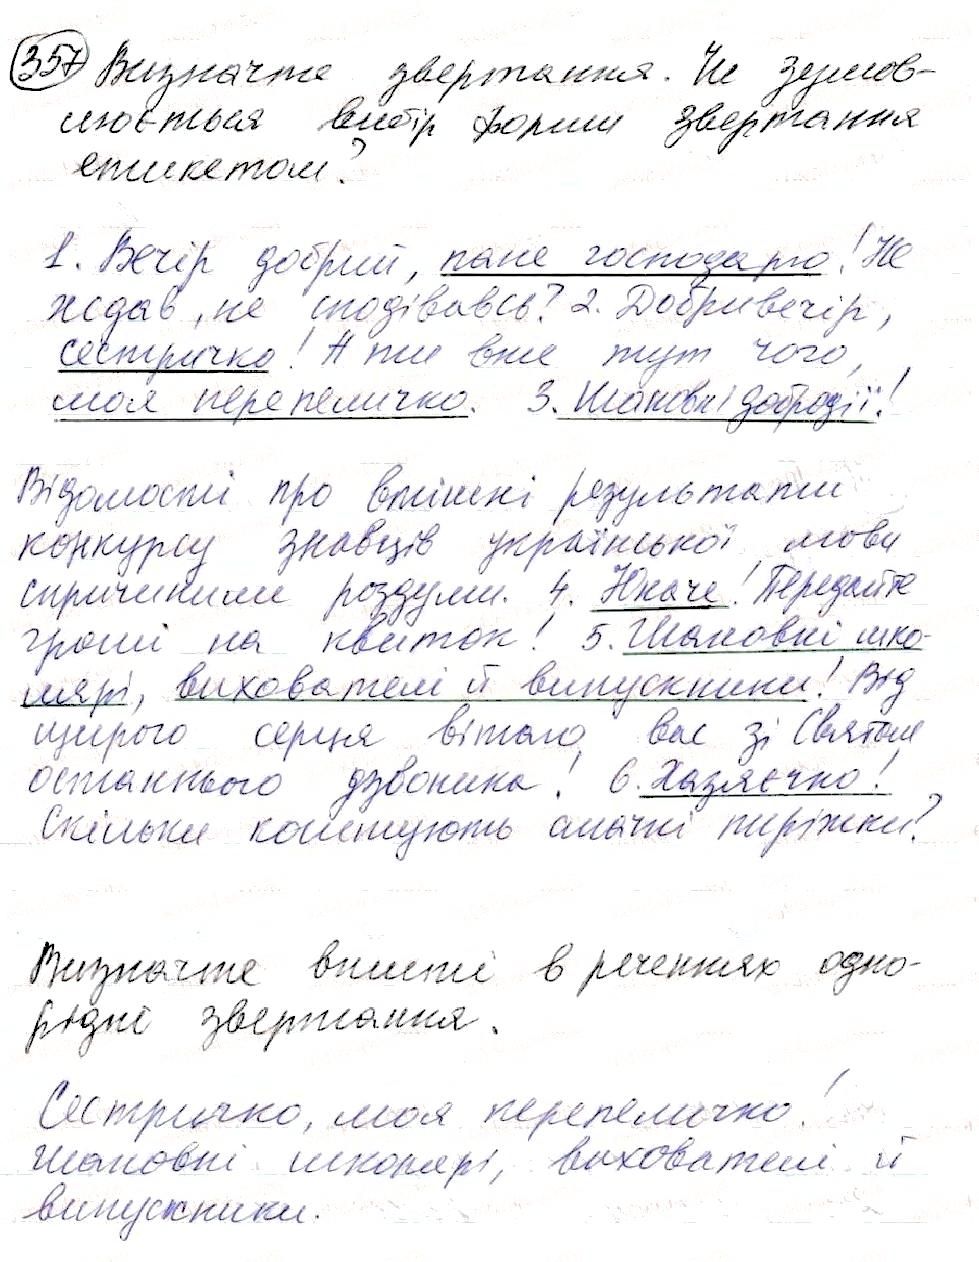 357 Визначте звертання. Чи зумов-
люється вибір форми звертання
етикетом?
1. Вечір добрий, пане господарю! Не
ждав, не сподівавсь? 2. Добривечір,
сестричко! А ти вже тут чого,
моя перепеличко. 3. Шановні добродії!
Відомості про втішні результати
конкурсу знавців української мови
спричинили роздуми. 4. Юначе! Передайте
гроші на квиток! 5. Шановні шко-
лярі, вихователі й випускники! Від
щирого серця вітаю вас зі Святом
останнього дзвоника! 6. Хазяєчко!
Скільки коштують смачні пиріжки?
Визначте вжиті в реченнях одно-
рідні звертання.
Сестричко, моя перепеличко!
Шановні школярі, вихователі й
випускники.